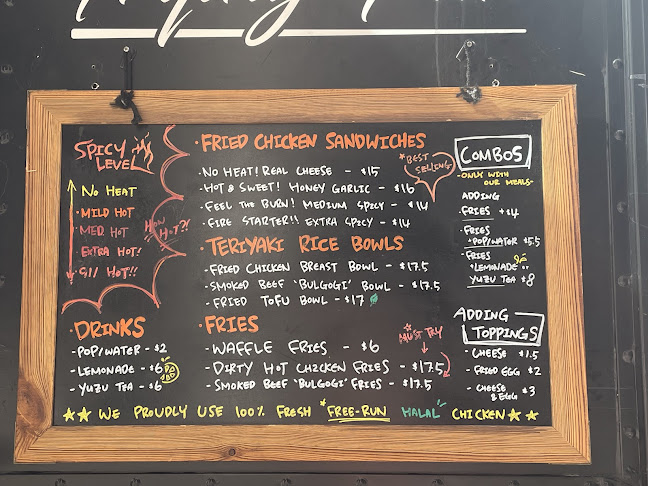 SPICY LEVEL
NO HEAT
· MILD HOT
· MED HOT
· EXTRA HOT!
· 911 HOT!!
HOW HOT?!
· FRIED CHICKEN SANDWICHES
NO HEAT! REAL CHEESE - $15
· HOT & SWEET! HONEY GARLIC - $16
· FEEL THE BURN! MEDIUM SPICY - $14
· FIRE STARTER!! EXTRA SPICY - $14
BEST SELLING
· TERIYAKI RICE BOWLS
- FRIED CHICKEN BREAST BOWL - $17.5
- SMOKED BEEF 'BULGOGI' BOWL - $17.5
- FRIED TOFU BOWL - $17
· DRINKS
- POP/WATER - $2
- LEMONADE - $6
- YUZU TEA - $6
· FRIES
- WAFFLE FRIES - $6
- DIRTY HOT CHICKEN FRIES - $17.5
- SMOKED BEEF 'BULGOGI' FRIES - $17.5
MUST TRY
COMBOS
- ONLY WITH
OUR MEALS -
ADDING
· FRIES + $4
· FRIES
+ POP/WATER $5.5
· FRIES
+ LEMONADE
YUZU TEA + $8
ADDING
TOPPINGS
- CHEESE $1.5
- FRIED EGG $2
- CHEESE & EGG $3
★★ WE PROUDLY USE 100% FRESH *FREE-RUN HALAL CHICKEN ★★